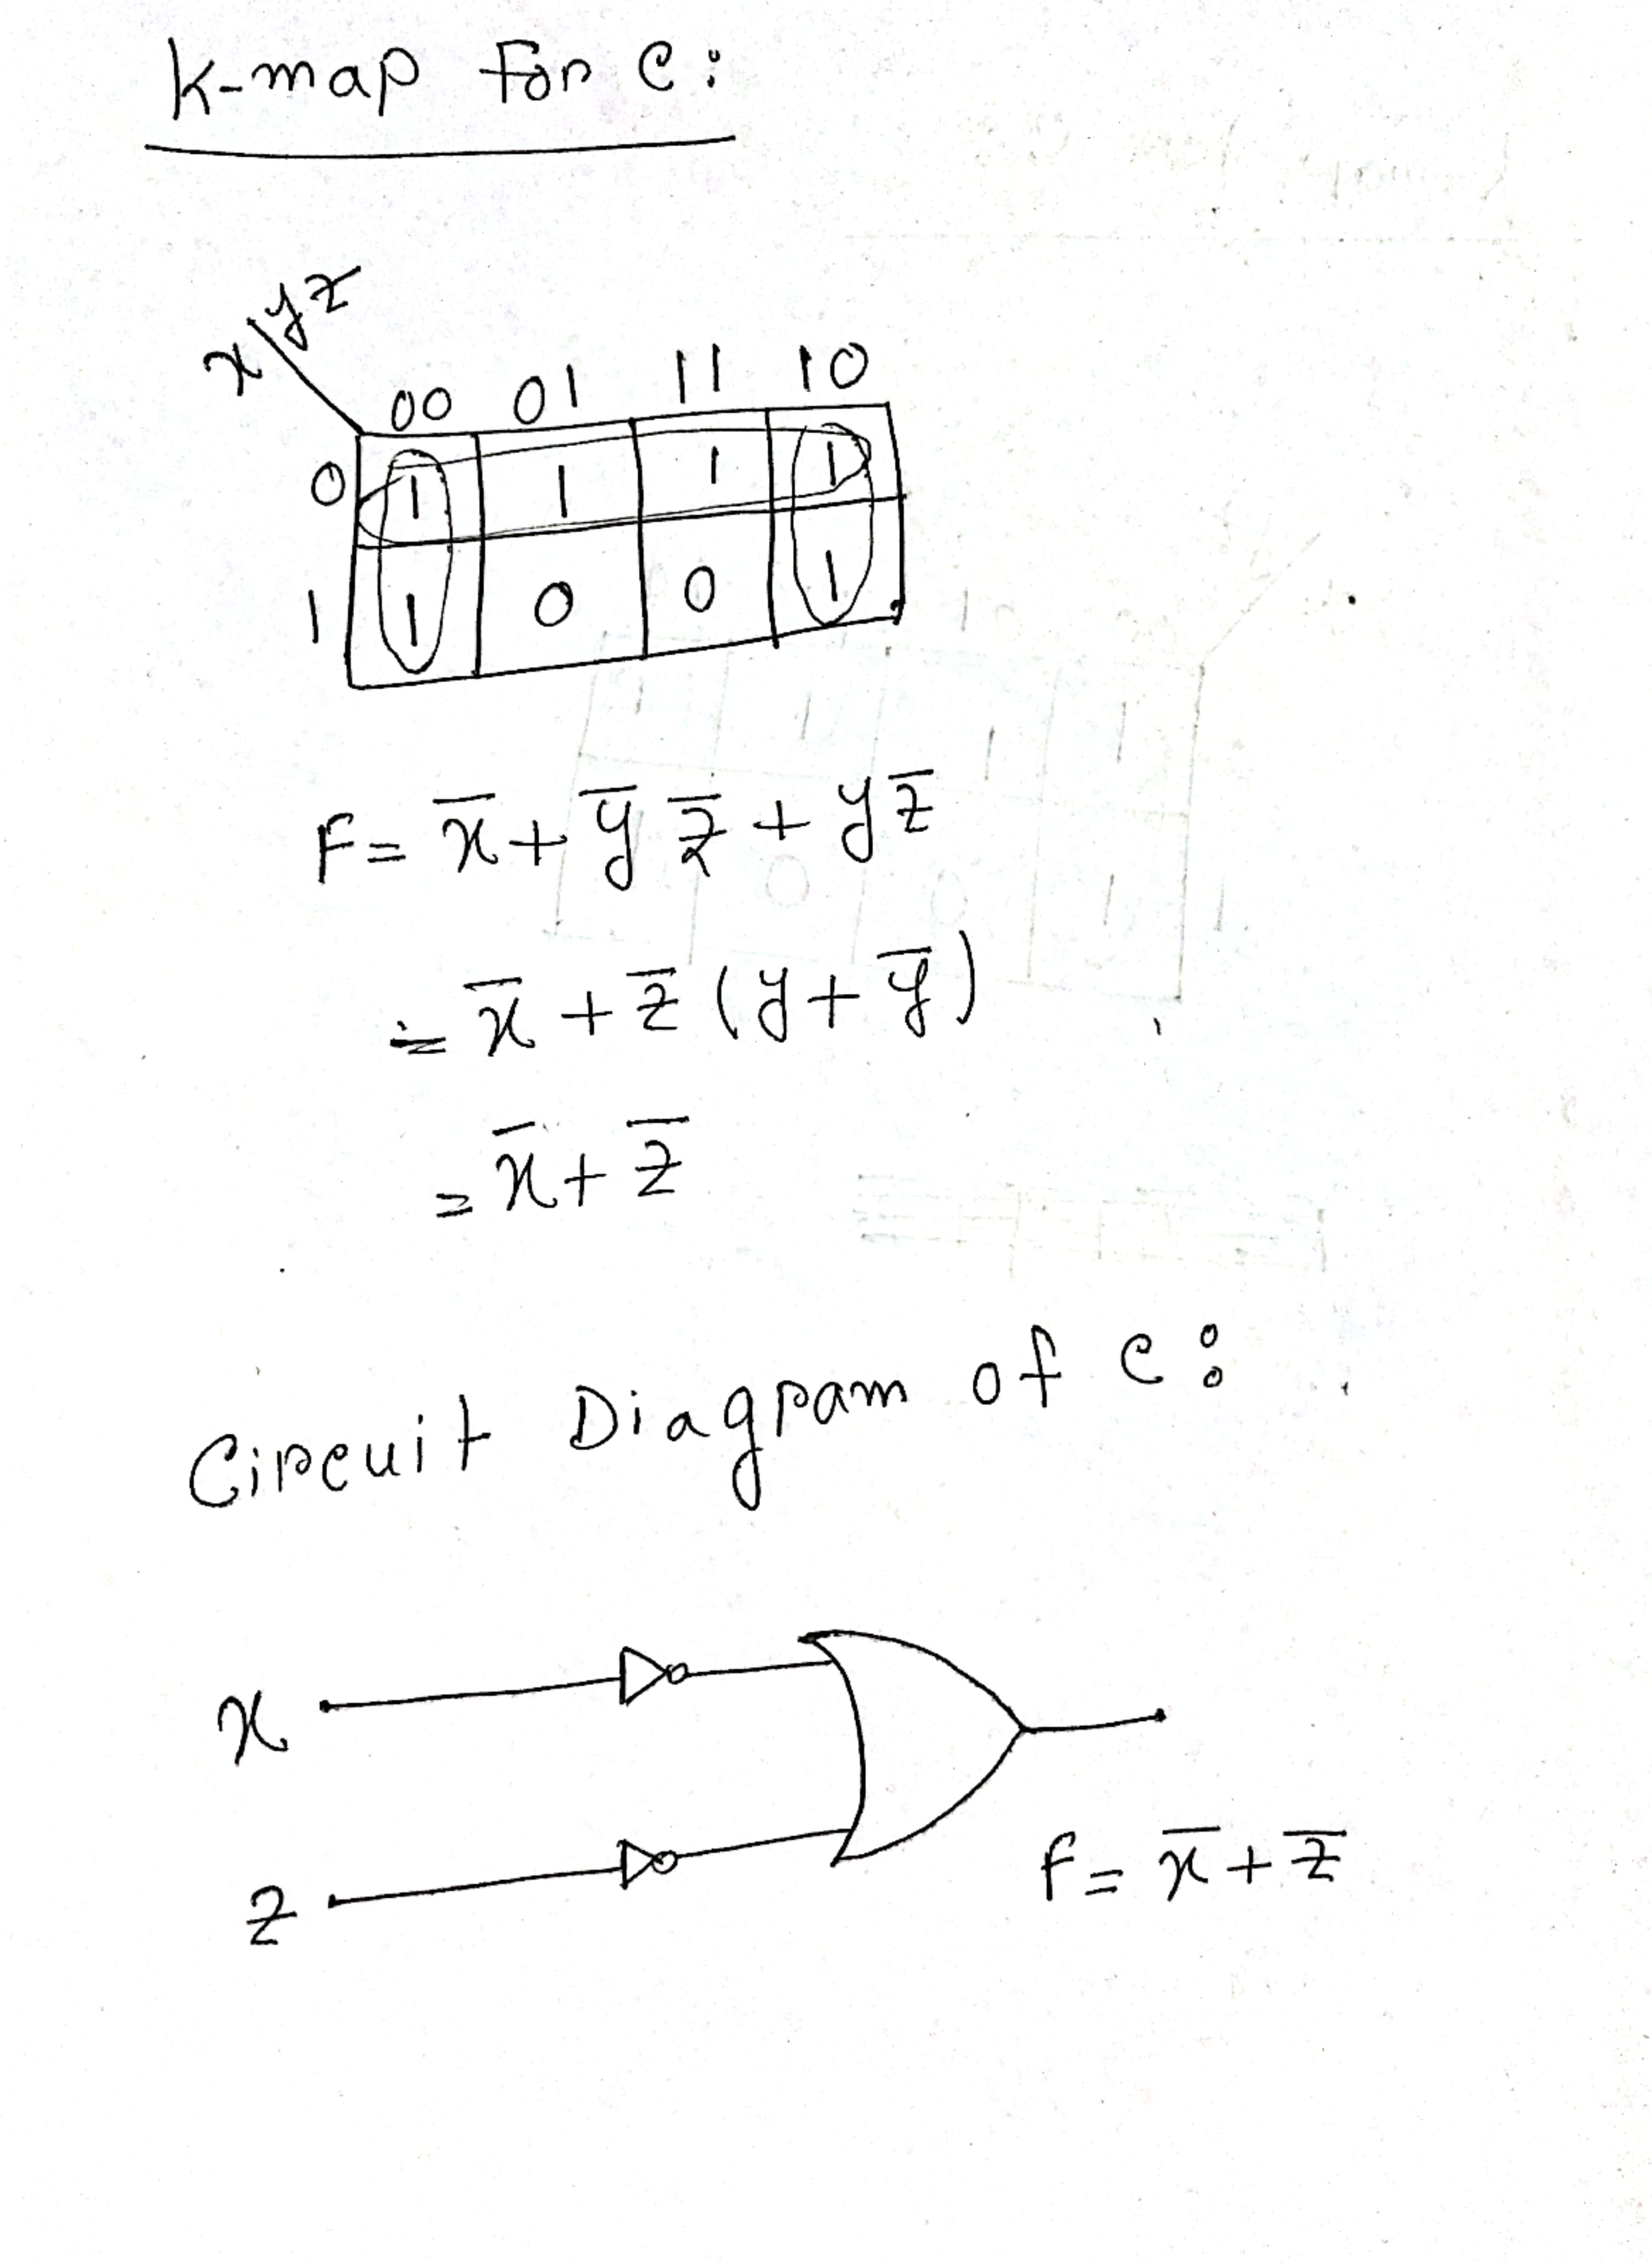 K-map for C:
x yz
00 01 11 10
0 1 1 1 1
1 1 0 0 1
F = x̅ + y̅ z̅ + y z̅
= x̅ + z̅ (y + y̅)
= x̅ + z̅
Circuit Diagram of C:
x
z
F = x̅ + z̅